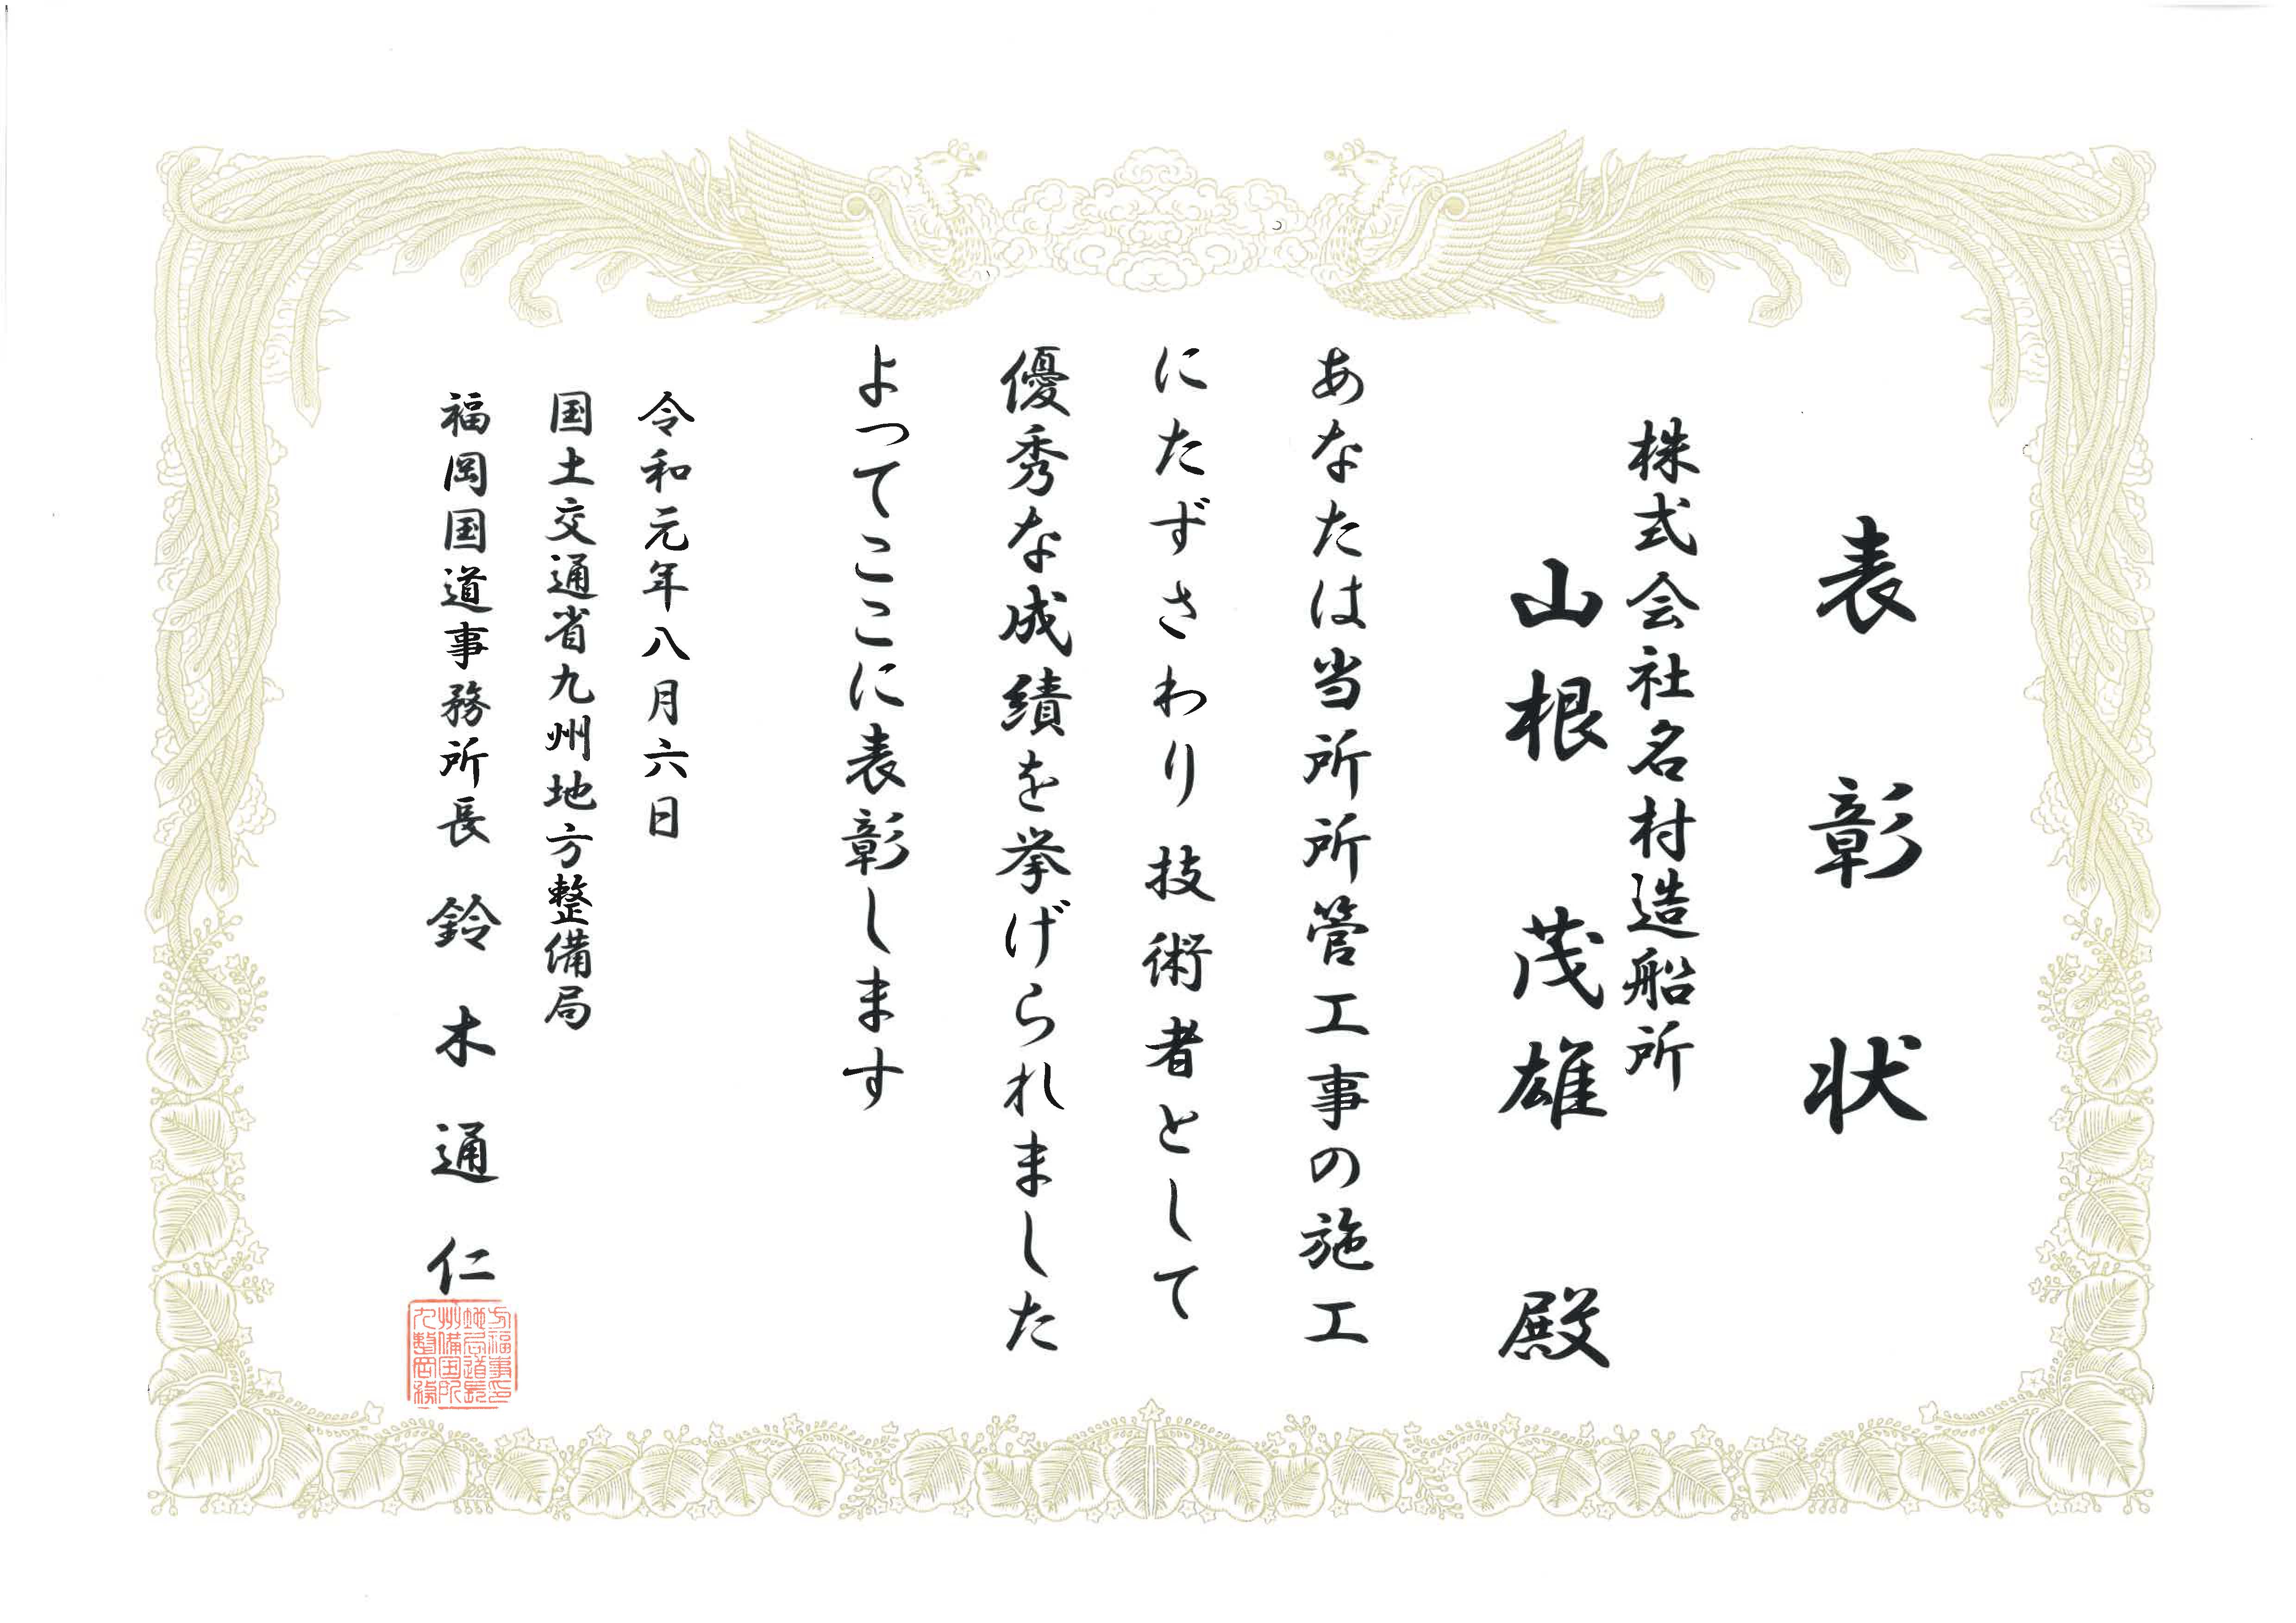 表彰状
株式会社名村造船所
山根 茂雄 殿
あなたは当所所管工事の施工
にたずさわり技術者として
優秀な成績を挙げられました
よってここに表彰します
令和元年八月六日
国土交通省九州地方整備局
福岡国道事務所長 鈴木通仁